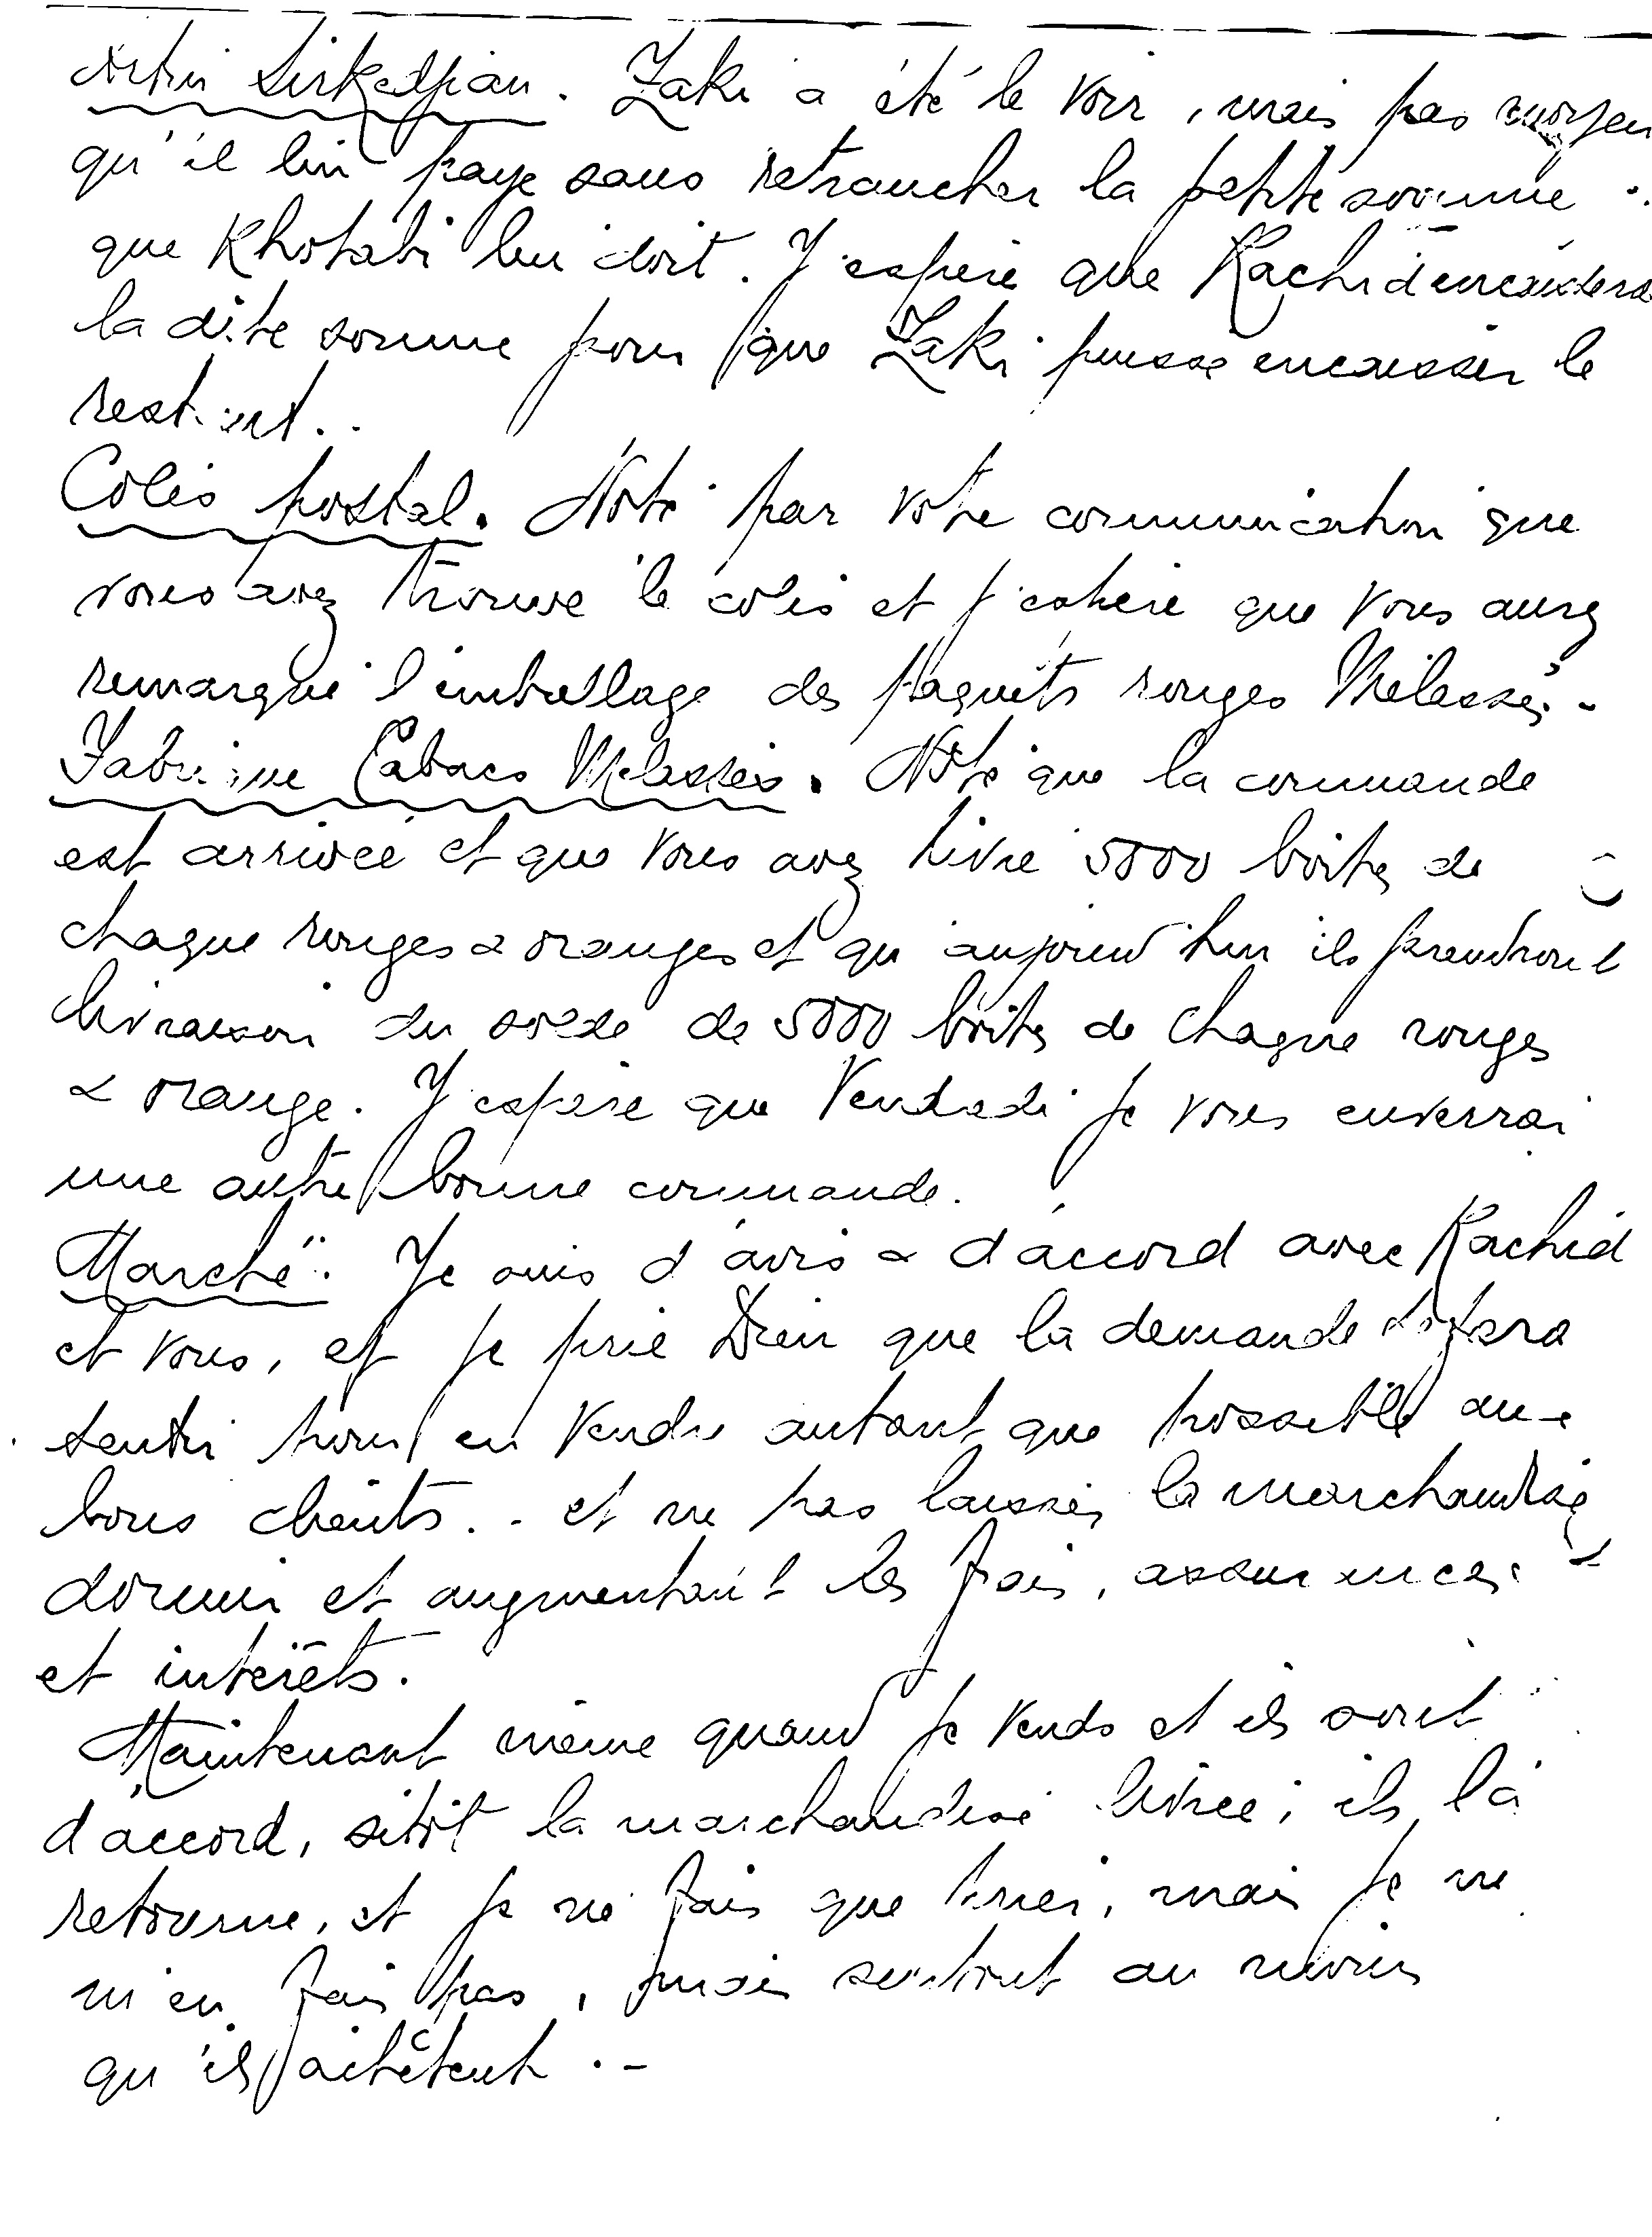 Artin Sirkedjian. Zaki a été le voir, mais pas moyen
qu'il lui paye sans retrancher la petite somme
que Khotabi lui doit. J'espère que Rachid encaissera
la dite somme pour que Zaki puisse encaisser le
restant..
Colis postal. Noté par votre communication que
vous avez trouvé le colis et j'espère que vous aurez
remarqué l'emballage des paquets rouges Mélassés.-
Fabrique Tabacs Mélassés. Noté que la commande
est arrivée et que vous avez livré 5000 boites de
chaque rouges & oranges et qu'aujourd'hui ils prendront
livraison du solde de 5000 boites de chaque rouges
& orange. J'espère que Vendredi je vous enverrai
une autre bonne commande.
Marché. Je suis d'avis & d'accord avec Rachid
et vous, et je prie Dieu que la demande se fera
sentir pour en vendre autant que possible aux
bons clients.. et ne pas laisser la marchandise
dormir et augmentant les frais, assurances
et intérêts.
Maintenant même quand je vends et ils sont
d'accord, sitôt la marchandise livrée, ils la
retourne, et je ne fais que crier, mais je ne
m'en fais pas, mais surtout au moins
qu'ils achètent.-